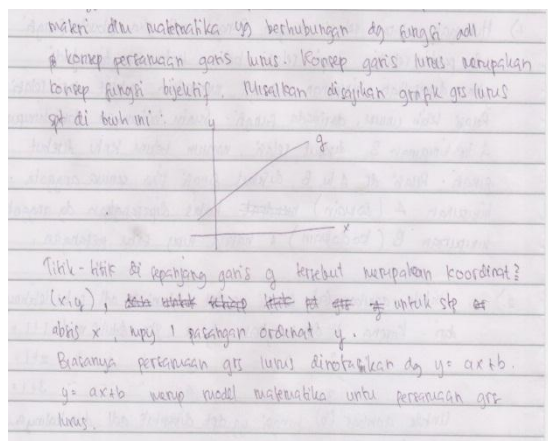 materi dlm matematika yg berhubungan dg fungsi adl
konsep persamaan garis lurus. Konsep garis lurus merupakan
konsep fungsi bijektif. Misalkan disajikan grafik grs lurus
spt di bawah ini :
y
g
x
Titik-titik di sepanjang garis g tersebut merupakan koordinat2
(x,y), untuk stp
absis x, mpy 1 pasangan ordinat y.
Biasanya persamaan grs lurus dinotasikan dg y = ax+b.
y = ax+b merup model matematika untu persamaan grs
lurus.